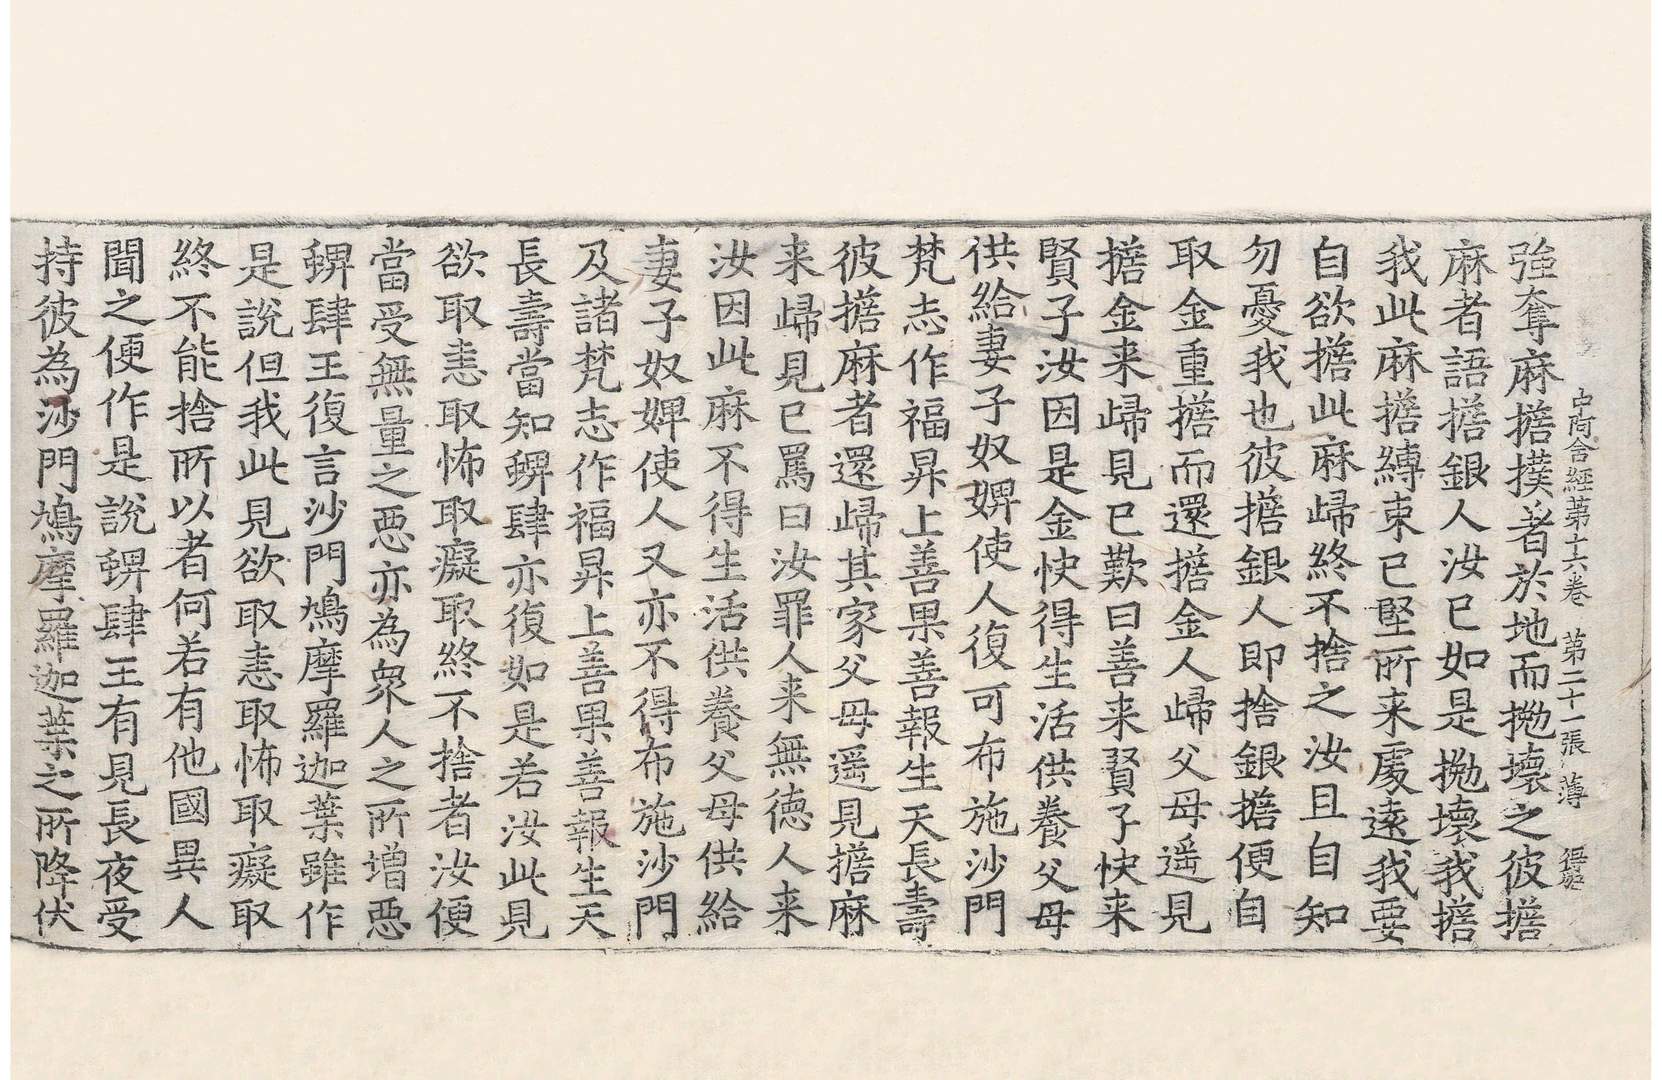 中阿含經第十六卷 第二十一張 薄
強奪麻擔撲著於地而㧢壞之彼擔
麻者語擔銀人汝已如是㧢壞我擔
我此麻擔縛束已堅所来處遠我要
自欲擔此麻歸終不捨之汝且自知
勿憂我也彼擔銀人即捨銀擔便自
取金重擔而還擔金人歸父母遥見
擔金来歸見已歎曰善来賢子快来
賢子汝因是金快得生活供養父母
供給妻子奴婢使人復可布施沙門
梵志作福昇上善果善報生天長壽
彼擔麻者還歸其家父母遥見擔麻
来歸見已罵曰汝罪人来無德人来
汝因此麻不得生活供養父母供給
妻子奴婢使人又亦不得布施沙門
及諸梵志作福昇上善果善報生天
長壽當知蜱肆亦復如是若汝此見
欲取恚取怖取癡取終不捨者汝便
當受無量之惡亦為衆人之所增惡
蜱肆王復言沙門鳩摩羅迦葉雖作
是說但我此見欲取恚取怖取癡取
終不能捨所以者何若有他國異人
聞之便作是說蜱肆王有見長夜受
持彼為沙門鳩摩羅迦葉之所降伏